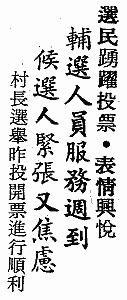 選民踴躍投票•表情興悅
輔選人員服務週到
候選人緊張又焦慮
村長選舉昨投開票進行順利